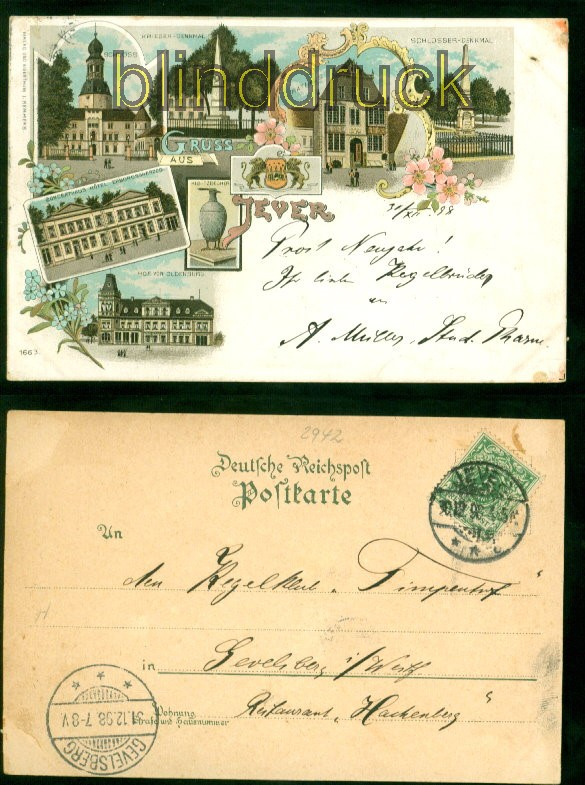 blinddruck
SCHLOSS
KRIEGER-DENKMAL
SCHLOSSER-DENKMAL
GRUSS
AUS
JEVER
CONCERTHAUS HÔTEL ERBGROSSHERZOG
HOF VON OLDENBURG
1663
31/XII. 98
Prost Neujahr!
Ihr lieben Kegelbrüder
A. Müller, Stud.
2942
Deutsche Reichspost
Postkarte
JEVER
An
den Kegelklub „Timpenhut“
in Gevelsberg i/Westf
Restaurant „Hackenberg“
Wohnung
Straße und Hausnummer
31.12.98.7-8V.
GEVELSBERG